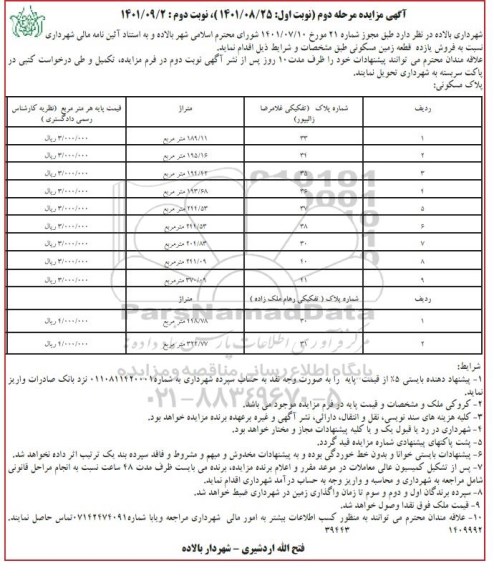 آگهی مزایده مرحله دوم (نوبت اول: ۱۴۰۱/۰۸/۲۵)، نوبت دوم : ۱۴۰۱/۰۹/۲
شهرداری بالاده در نظر دارد طبق مجوز شماره ۲۱ مورخ ۱۴۰۱/۰۷/۱۰ شورای محترم اسلامی شهر بالاده و به استناد آئین نامه مالی شهرداری
نسبت به فروش یازده قطعه زمین مسکونی طبق مشخصات و شرایط ذیل اقدام نماید.
علاقه مندان محترم می توانند پیشنهادات خود را ظرف مدت ۱۰ روز پس از نشر آگهی نوبت دوم در فرم مزایده، تکمیل و طی درخواست کتبی در
پاکت سربسته به شهرداری تحویل نمایند.
پلاک مسکونی:
ردیف شماره پلاک (تفکیکی غلامرضا زالپور) متراژ قیمت پایه هر متر مربع (نظریه کارشناس رسمی دادگستری)
۱ ۳۳ ۱۸۲/۱۱ متر مربع ۳/۰۰۰/۰۰۰ ریال
۲ ۳۴ ۱۹۵/۱۶ متر مربع ۳/۰۰۰/۰۰۰ ریال
۳ ۳۵ متر مربع ۳/۰۰۰/۰۰۰ ریال
۴ ۳۶ ۱۹۳/۶۸ متر مربع ۳/۰۰۰/۰۰۰ ریال
۵ ۳۷ ۲۴۴/۵۳ متر مربع ۳/۰۰۰/۰۰۰ ریال
۶ ۳۸ ۲۴۴/۵۳ متر مربع ۳/۰۰۰/۰۰۰ ریال
۷ ۳۰ ۲۰۴/۸۳ متر مربع ۳/۰۰۰/۰۰۰ ریال
۸ ۴۰ ۲۴۱/۰۹ متر مربع ۳/۰۰۰/۰۰۰ ریال
۹ ۴۱ ۳۷۰/۰۹ متر مربع ۳/۰۰۰/۰۰۰ ریال
ردیف شماره پلاک ( تفکیکی رهام ملک زاده ) متراژ
۱ ۳۰ ۲۹۸/۷۸ متر مربع ۴/۰۰۰/۰۰۰ ریال
۲ ۳۱ ۳۲۴/۷۷ متر مربع ۴/۰۰۰/۰۰۰ ریال
ParsNamadData
مرکز فرآوری اطلاعات پارس نماد داده ها
پایگاه اطلاع رسانی مناقصه و مزایده
۰۲۱-۸۸۳۴۹۶۷۰-۵
شرایط:
۱- پیشنهاد دهنده بایستی ۵٪ از قیمت پایه را به صورت وجه نقد به حساب سپرده شهرداری به شماره ۰۱۱۰۸۱۱۴۲۰۰۰۱ نزد بانک صادرات واریز
نماید.
۲- کروکی ملک و مشخصات و قیمت پایه در فرم مزایده موجود می باشد.
۳- کلیه هزینه های سند نویسی، نقل و انتقال، دارائی، نشر آگهی و غیره برعهده برنده مزایده خواهد بود.
۴- شهرداری در رد یا قبول یک و یا کلیه پیشنهادات مجاز و مختار خواهد بود.
۵- پشت پاکتهای پیشنهادی شماره مزایده قید گردد.
۶- پیشنهادات بایستی خوانا و بدون خط خوردگی بوده و به پیشنهادات مخدوش و مبهم و مشروط و فاقد سپرده بند یک ترتیب اثر داده نخواهد شد.
۷- پس از تشکیل کمیسیون عالی معاملات در موعد مقرر و اعلام برنده مزایده، برنده می بایست ظرف مدت ۴۸ ساعت نسبت به انجام مراحل قانونی
شامل مراجعه به شهرداری و محاسبه و واریز وجه به حساب درآمد شهرداری اقدام نماید.
۸- سپرده برندگان اول و دوم و سوم تا زمان واگذاری زمین در شهرداری ضبط خواهد شد.
۹- قیمت ملک فوق نقدا وصول خواهد شد.
۱۰- علاقه مندان محترم می توانند به منظور کسب اطلاعات بیشتر به امور مالی شهرداری مراجعه ویابا شماره ۰۷۱۴۲۴۷۴۰۹۱ تماس حاصل نمایند.
۱۴۰۹۹۹۲ ۳۹۴۴۳
فتح الله اردشیری - شهردار بالاده